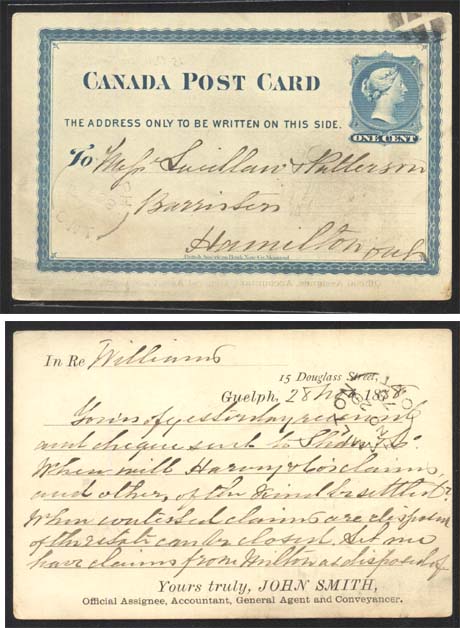 CANADA POST CARD
THE ADDRESS ONLY TO BE WRITTEN ON THIS SIDE.
ONE CENT
To Mess Patterson
Barristers
Hamilton Ont
British American Bank Note Co. Montreal
In Re Williams
15 Douglass Street,
Guelph, 28 187
Yours of yesterday received
and cheque sent to
When will Harvey & Co's claims
and other, of the kind be settled?
When contested claims are disposed
of the estate can be closed. Let me
have claims from Milton as disposed of
Yours truly, JOHN SMITH,
Official Assignee, Accountant, General Agent and Conveyancer.